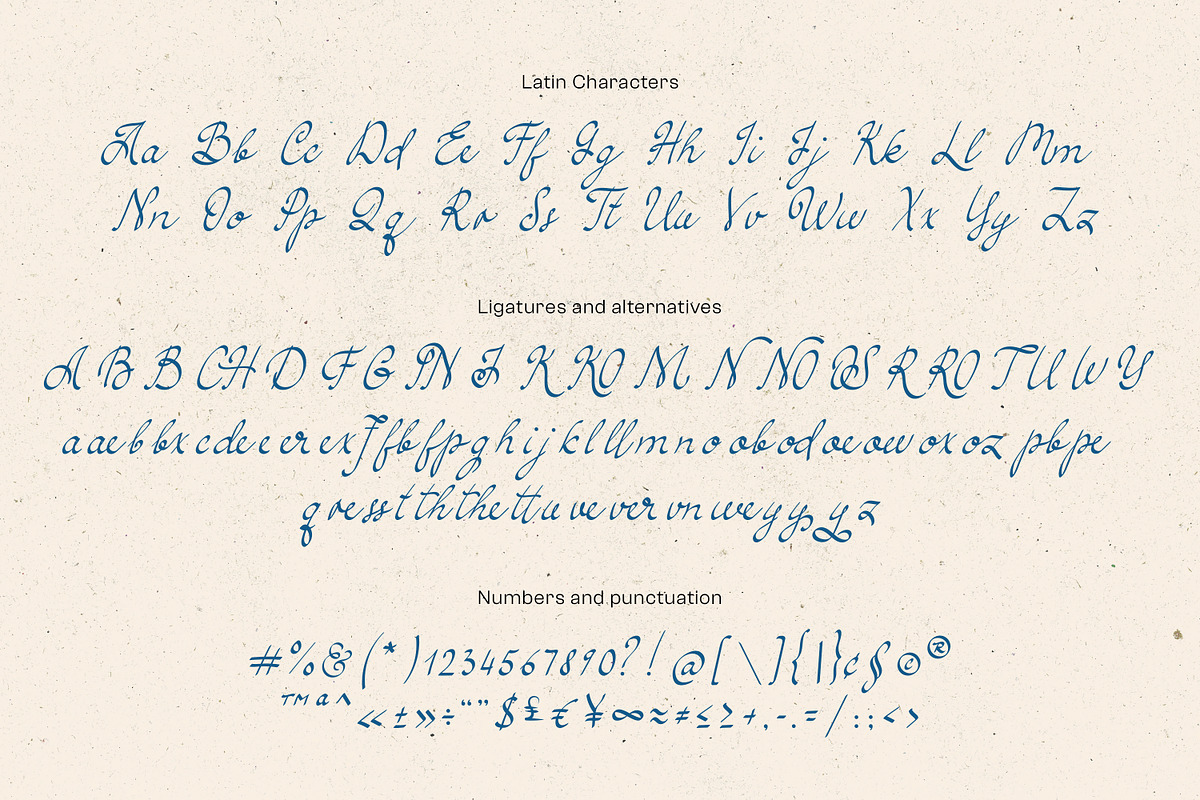 Latin Characters
Aa Bb Cc Dd Ee Ff Gg Hh Ii Jj Kk Ll Mm
Nn Oo Pp Qq Rr Ss Tt Uu Vv Ww Xx Yy Zz
Ligatures and alternatives
A B B CH D F G IN J K KO M N NO OS R RO T U W Y
a ae b bx c de e er ex f fb fp g h i j k l ll m n o ob od oe ow ox oz pb pe
q re ss t th the tt u ve ver vn we y y y z
Numbers and punctuation
#%&(*)1234567890?!@[\]{|}¢§©®
™ª^«±»÷“”$£€¥∞≈≠≤≥+,-.=/:;<>